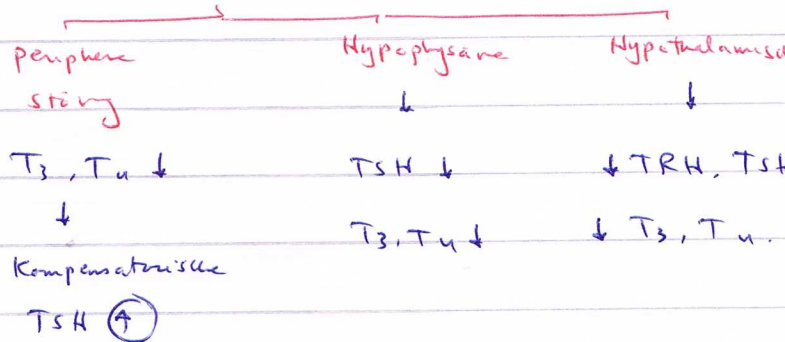 periphere
störung
T₃, T₄ ↓
↓
Kompensatorische
TSH ↑
Hypophysäre
↓
TSH ↓
T₃, T₄ ↓
Hypothalamisch
↓
↓ TRH, TSH
↓ T₃, T₄.